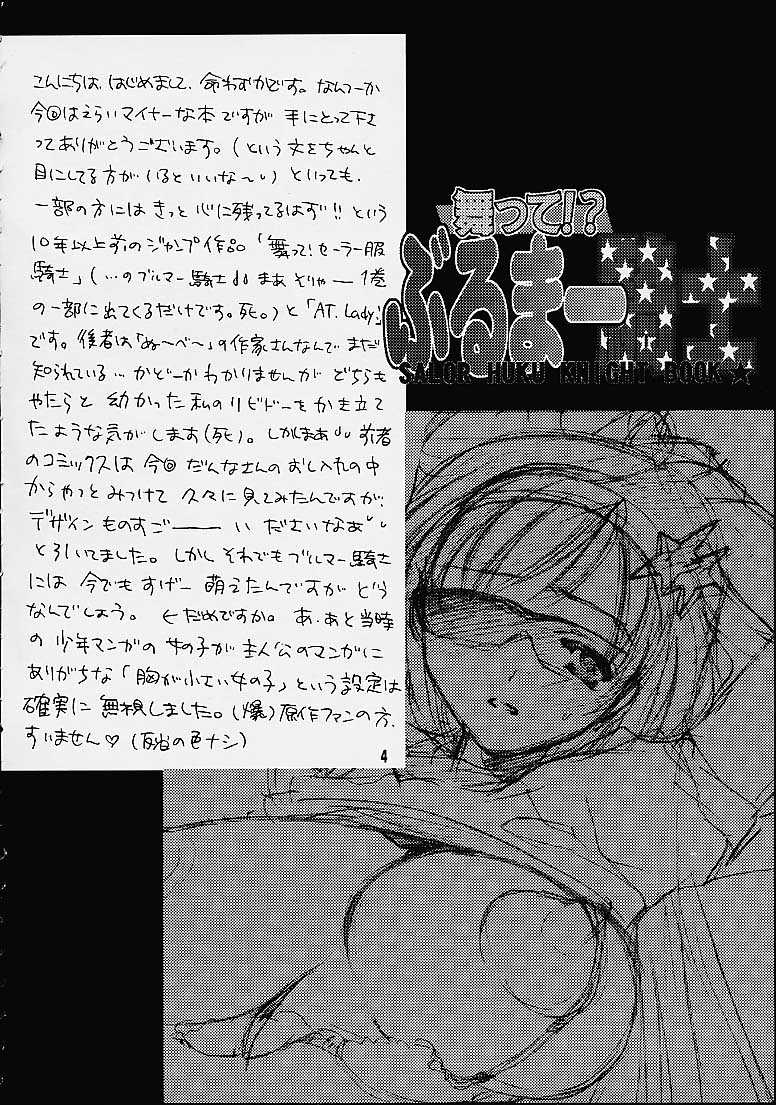 こんにちは、はじめまして、命わずかです。なんつーか
今回はえらいマイナーな本ですが 手にとって下さ
ってありがとうございます。(という文をちゃんと
目にしてる方が いるといいな〜い) といっても、
一部の方には きっと 心に残ってるはず!! という
10年以上前のジャンプ作品「舞って!セーラー服
騎士」(…のブルマー騎士 まあ そりゃー 1巻
の一部に出てくるだけです。死。)と「AT. Lady」
です。後者は「ぬ〜べ〜」の作家さんなんで まだ
知られている… かどーか わかりませんが どちらも
やたらと 幼かった 私のリビドーを かき立て
たような 気がします(死)。しかしまあ 前者
のコミックスは 今回 だんなさんの おし入れの中
からやっと みつけて 久々に 見てみたんですが、
デザイン ものすご――― い ださいなあ
とろいてました。しかし それでも ブルマー騎士
には 今でも すげー 萌えたんですが どう
なんでしょう。 ←だめですか。 あ、あと 当時
の 少年マンガの 女の子が 主人公のマンガに
ありがちな「胸が小さい女の子」という設定は
確実に 無視しました。(爆)原作ファンの方、
すいません♡ (反省の色ナシ)
4
舞って!?
ぶるまー騎士
SALOR HUKU KNIGHT BOOK★